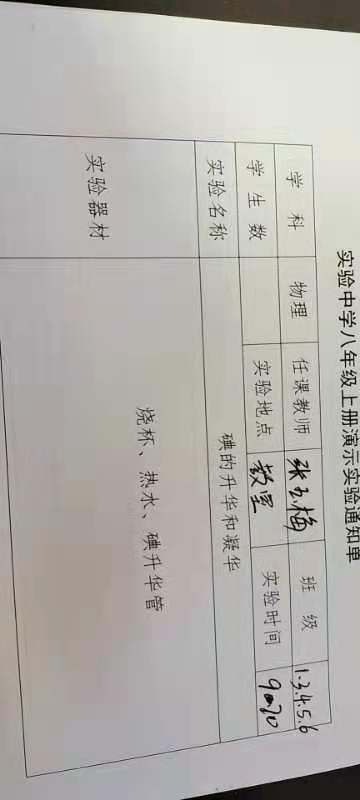 实验中学八年级上册演示实验通知单
学 科 物理 任课教师 张玉梅 班 级 1.3.4.5.6
学 生 数 实验地点 教室 实验时间
实验名称 碘的升华和凝华
实验器材 烧杯、热水、碘升华管